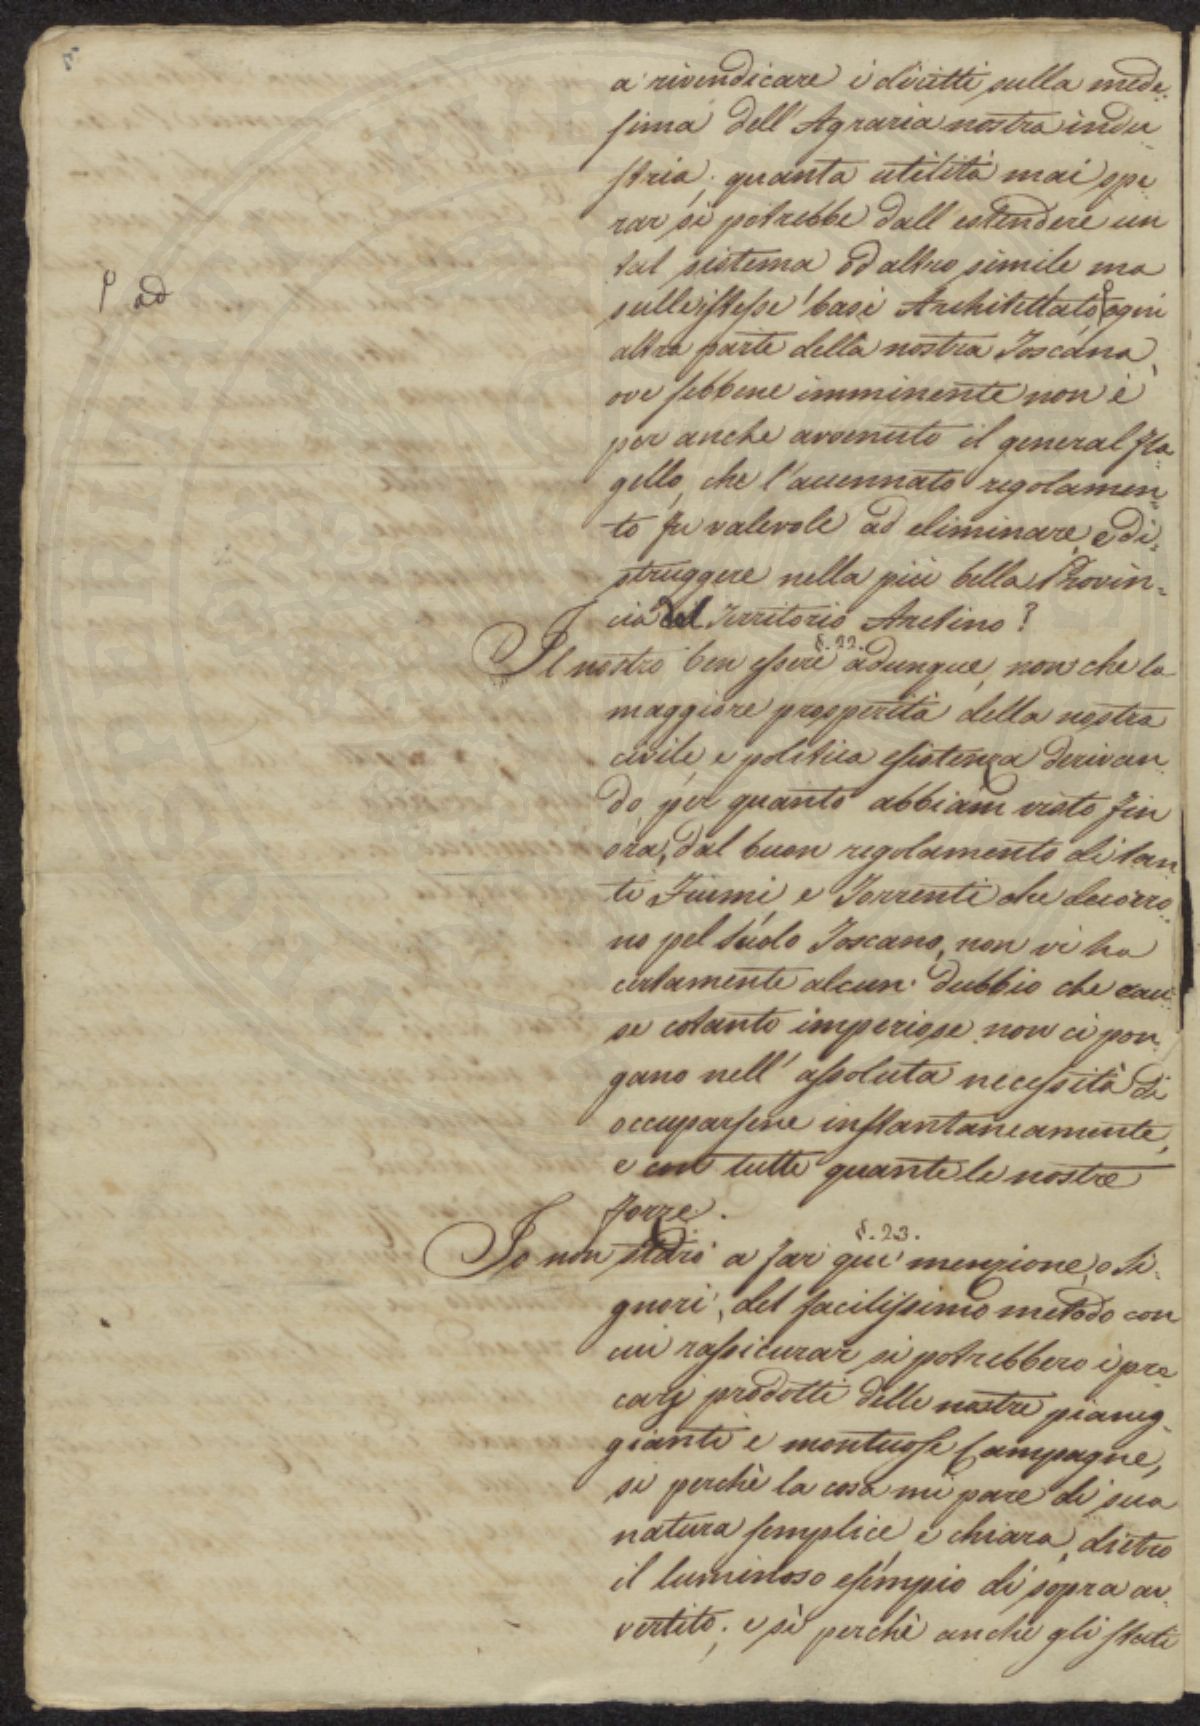 a rivendicare i diritti sulla mede=
sima dell'Agraria nostra indu
stria; quanta utilità mai spe
rar si potrebbe dall'estendere un
tal sistema od altro simile ma
sulle istesse basi Architettato ogni
ad
altra parte della nostra Toscana,
ove sebbene imminente non è
per anche avvenuto il general fla=
gello, che l'accennato regolamen=
to fu valevole ad eliminare, e di=
struggere nella più bella Provin=
cia del Territorio Aretino?
§. 22.
Il nostro ben essere adunque, non che la
maggiore prosperità della nostra
civile, e politica esistenza derivan=
do per quanto abbiam visto fin
ora, dal buon regolamento di tan
ti Fiumi e Torrenti che decorro=
no pel Suolo Toscano, non vi ha
certamente alcun dubbio che cau=
se cotanto imperiose non ci pon=
gano nell'assoluta necessità di
occuparsene instantaneamente,
e con tutte quante le nostre
forze.
§. 23.
Io non starò a far qui menzione, o Si=
gnori, del facilissimo metodo con
cui rassicurar si potrebbero i pre
carj prodotti delle nostre pianeg=
gianti e montuose Campagne,
si perchè la cosa mi pare di sua
natura semplice, e chiara, dietro
il luminoso esempio di sopra av=
vertito; e sì perchè anche gli stati